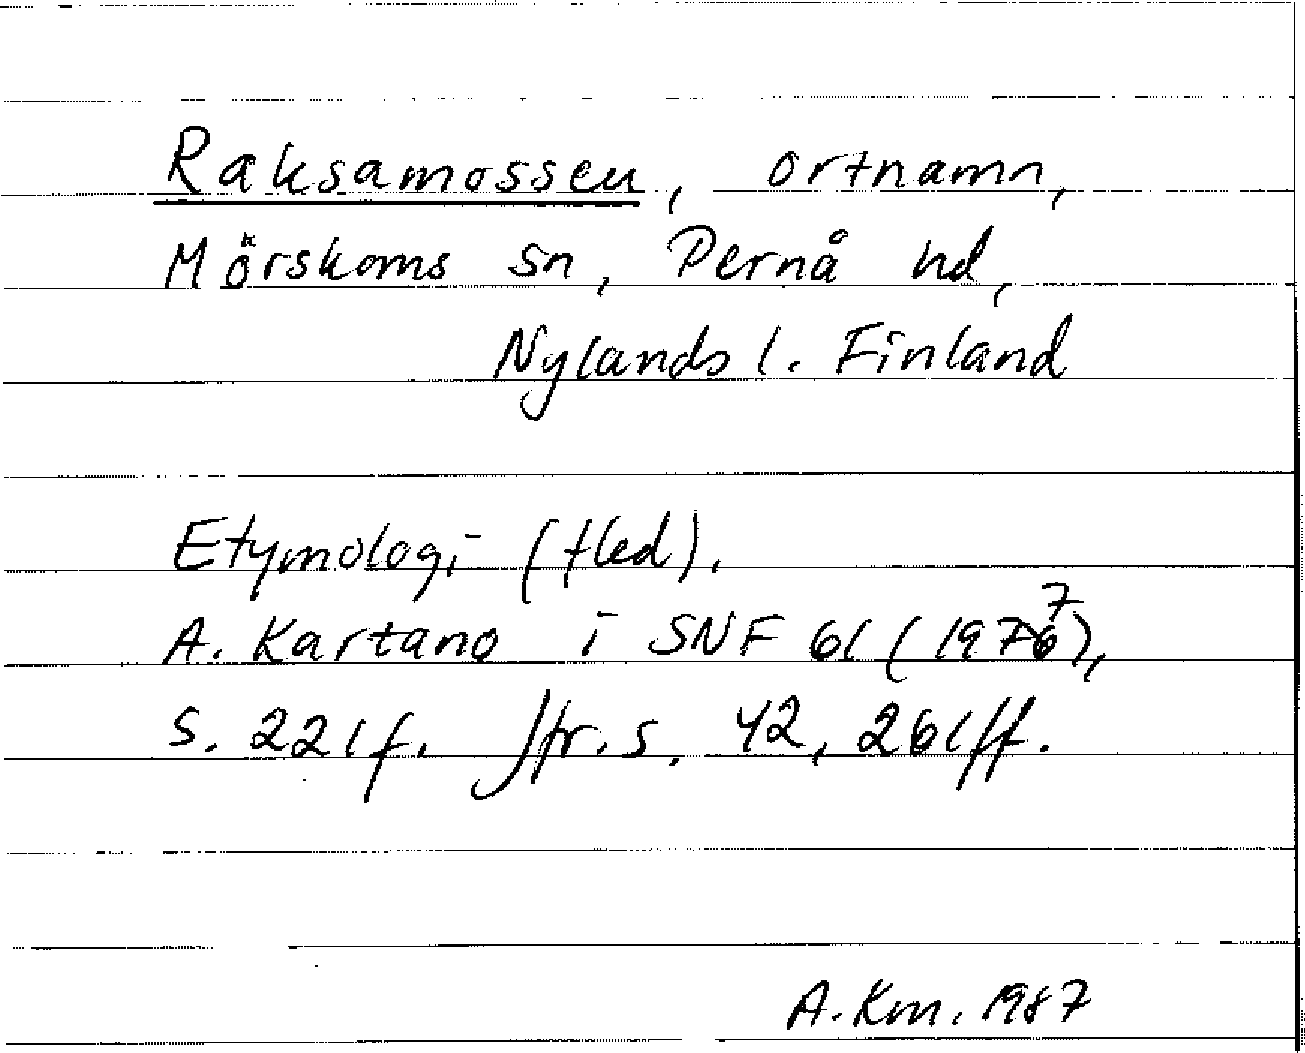 Raksamossen, ortnamn,
Mörskoms sn, Pernå hd,
Nylands l. Finland
Etymologi (fled).
A. Kartano i SNF 61 (1977),
s. 221f. Jfr. s. 42, 261ff.
A. Km. 1987